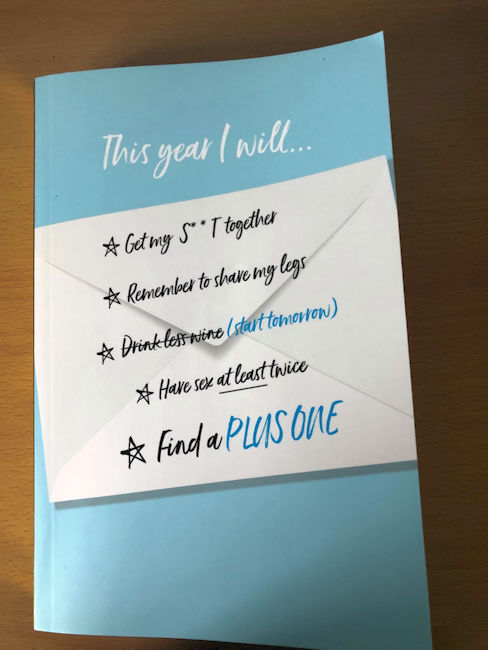 This year I will...
Get my S**T together
Remember to shave my legs
Drink less wine (start tomorrow)
Have sex at least twice
Find a PLUS ONE